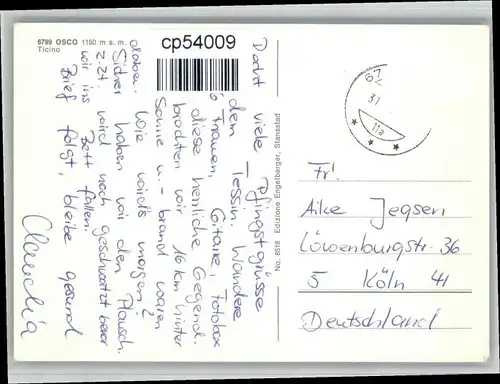 6799 OSCO 1160 m s. m.
Ticino
cp54009
Docht viele Pfingstgrüsse
dem Tessin. Wandere
6 Frauen, Gitarre, Fotobox
diese herrliche Gegend.
brachten wir 16 km hinter
Sonne u. - brand waren
dabei. Wie wird's morgen?
Sicher haben wir den Plausch.
z.Zt. wird noch geschwatzt bevor
wir ins Bett fallen.
Brief folgt, bleibe gesund
Claudia
No. 6516 Edizione Engelberger, Stansstad
67
31
11a
Frl.
Aike Jegsen
Löwenburgstr. 36
5 Köln 41
Deutschland